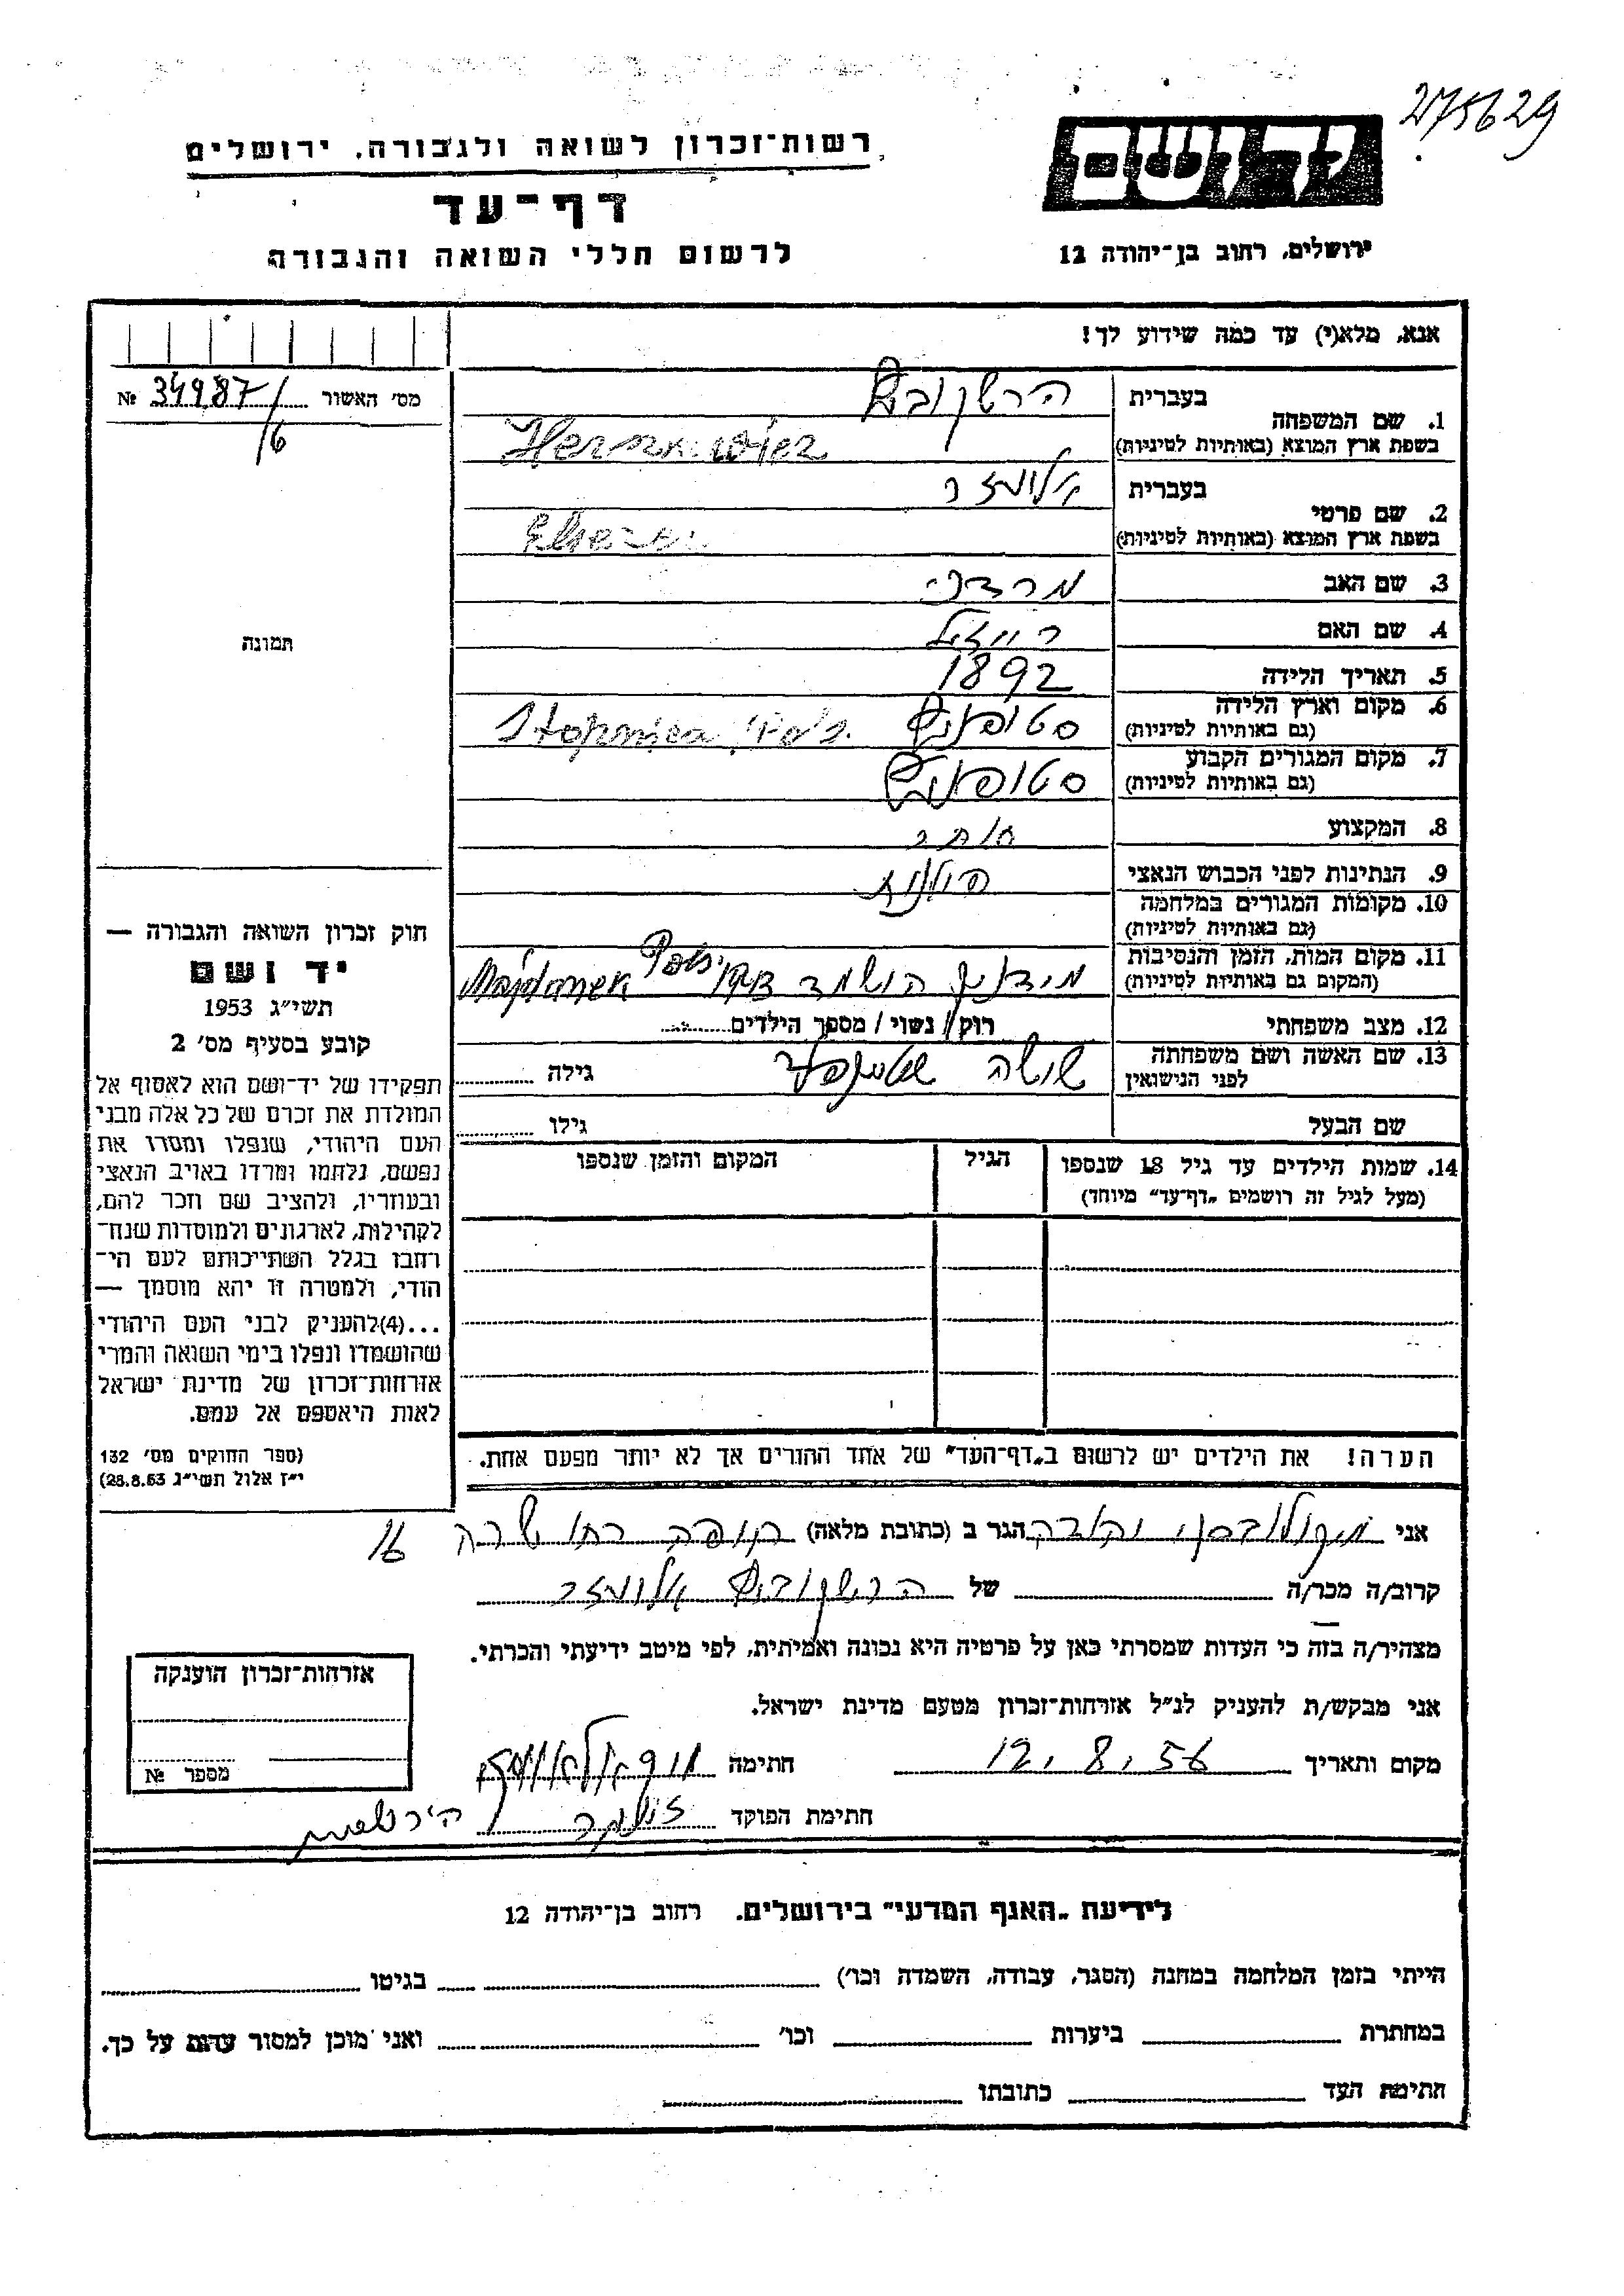 275629
יד ושם
רשות־זכרון לשואה ולגבורה, ירושלים
דף־עד
לרשום חללי השואה והגבורה
ירושלים, רחוב בן־יהודה 12
אנא, מלא(י) עד כמה שידוע לך!
מס' האשור № 34987/
16
תמונה
1. שם המשפחה
בעברית הרשקוביץ
בשפת ארץ המוצא (באותיות לטיניות) Herszkowicz
2. שם פרטי
בעברית אליעזר
בשפת ארץ המוצא (באותיות לטיניות)
3. שם האב מרדכי
4. שם האם רייזל
5. תאריך הלידה 1892
6. מקום וארץ הלידה סטופניץ Stopnica
(גם באותיות לטיניות)
7. מקום המגורים הקבוע סטופניץ
(גם באותיות לטיניות)
8. המקצוע סוחר
9. הנתינות לפני הכבוש הנאצי פולנית
10. מקומות המגורים במלחמה
(גם באותיות לטיניות)
11. מקום המות, הזמן והנסיבות מידנק הושמד Majdanek
(המקום גם באותיות לטיניות)
12. מצב משפחתי רוק/ נשוי/ מספר הילדים
13. שם האשה ושם משפחתה
לפני הנישואין גילה
שם הבעל גילו
14. שמות הילדים עד גיל 18 שנספו הגיל המקום והזמן שנספו
(מעל לגיל זה רושמים „דף־עד" מיוחד)
הערה! את הילדים יש לרשום ב„דף־העד" של אחד ההורים אך לא יותר מפעם אחת.
חוק זכרון השואה והגבורה —
יד ושם
תשי"ג 1953
קובע בסעיף מס' 2
תפקידו של יד־ושם הוא לאסוף אל
המולדת את זכרם של כל אלה מבני
העם היהודי, שנפלו ומסרו את
נפשם, נלחמו ומרדו באויב הנאצי
ובעוזריו, ולהציב שם וזכר להם,
לקהילות, לארגונים ולמוסדות שנח־
רבו בגלל השתייכותם לעם הי־
הודי, ולמטרה זו יהא מוסמך —
...(4)להעניק לבני העם היהודי
שהושמדו ונפלו בימי השואה והמרי
אזרחות־זכרון של מדינת ישראל
לאות היאספם אל עמם.
(ספר החוקים מס' 132
י"ז אלול תשי"ג 28.8.53)
אני הגר ב (כתובת מלאה) חיפה רחו' 16
קרוב/ה מכר/ה של הרשקוביץ אליעזר
מצהיר/ה בזה כי העדות שמסרתי כאן על פרטיה היא נכונה ואמיתית, לפי מיטב ידיעתי והכרתי.
אני מבקש/ת להעניק לנ"ל אזרחות־זכרון מטעם מדינת ישראל.
מקום ותאריך 12.8.56 חתימה
חתימת הפוקד
אזרחות־זכרון הוענקה
מספר №
לידיעת „האגף המדעי" בירושלים. רחוב בן־יהודה 12
הייתי בזמן המלחמה במחנה (הסגר, עבודה, השמדה וכו') בגיטו
במחתרת ביערות וכו' ואני מוכן למסור עדות על כך.
חתימת העד כתובתו